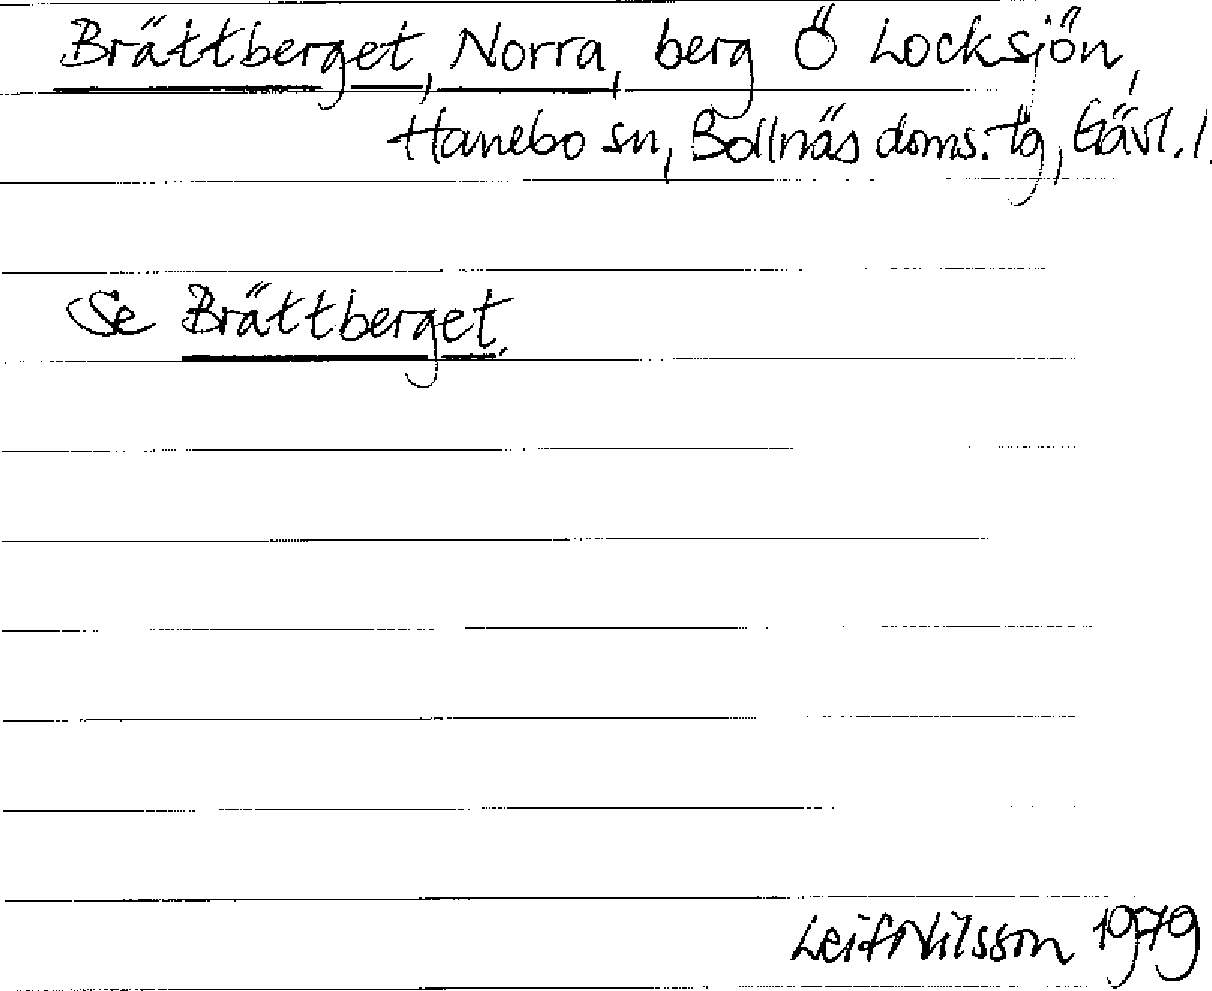 Brättberget, Norra, berg Ö Locksjön,
Hanebo sn, Bollnäs doms. tg, Gävl. l.
Se Brättberget.
Leif Nilsson 1979